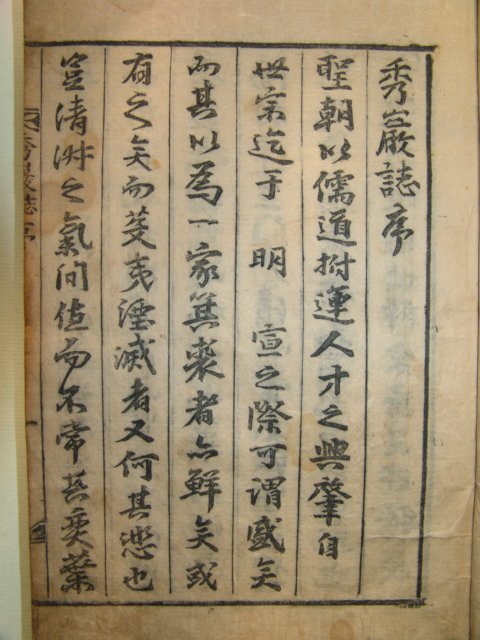 秀巖誌序
聖朝以儒道拊運人才之興肇自
世宗迄于 明 宣之際可謂盛矣
而其以爲一家箕裘者亦鮮矣或
有之矣而芟夷湮滅者又何其悲也
豈清淑之氣間値而不常甚奕葉
秀巖誌序 一